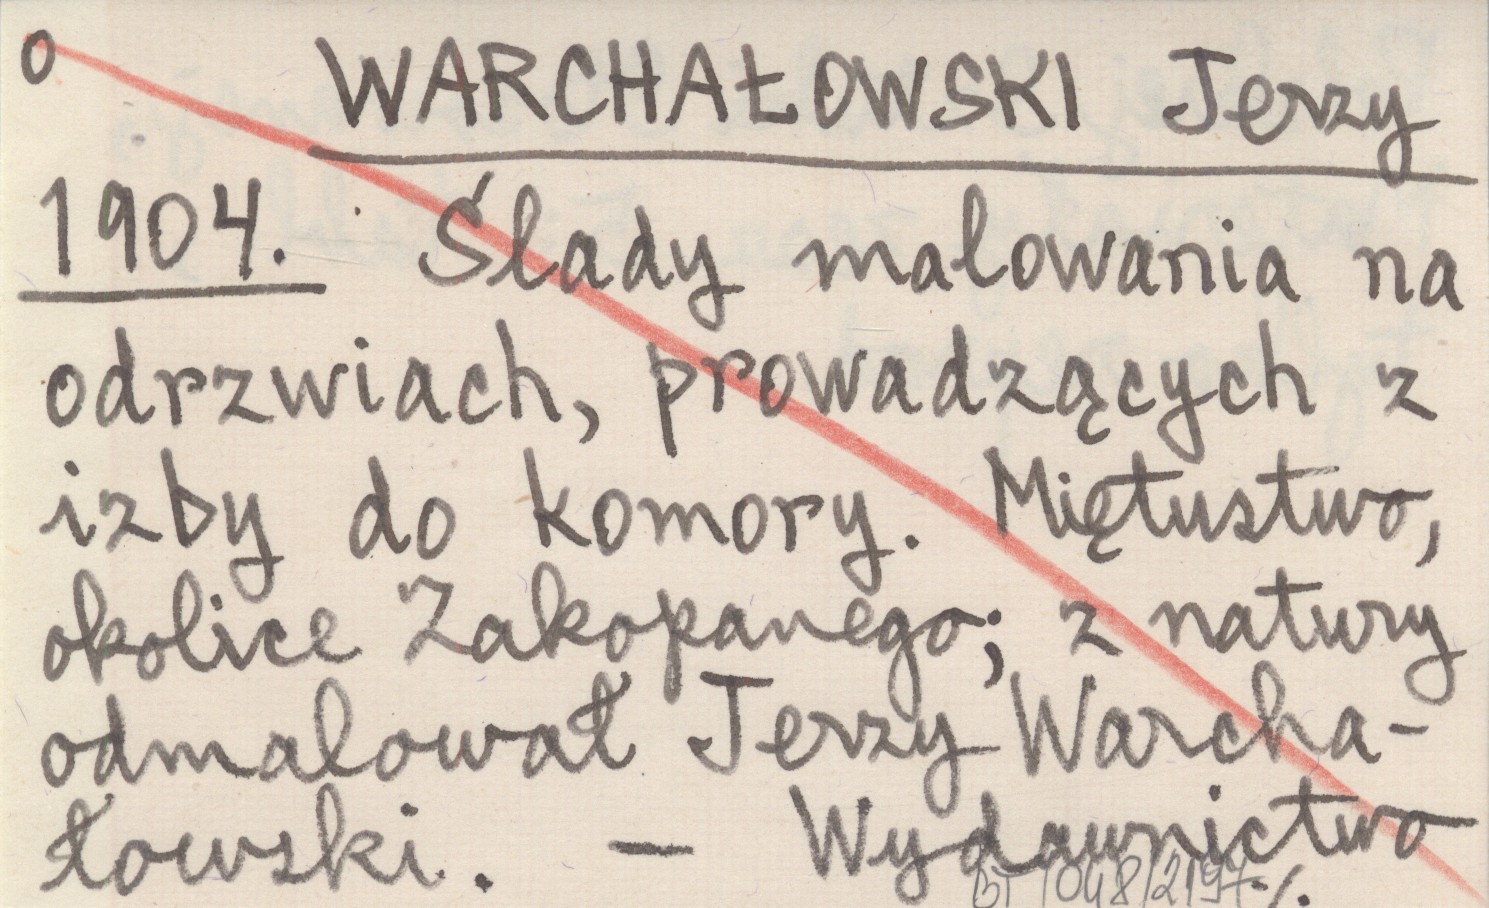 o WARCHAŁOWSKI Jerzy
1904. Ślady malowania na
odrzwiach, prowadzących z
izby do komory. Miętustwo,
okolice Zakopanego; z natury
odmalował Jerzy Warcha-
łowski. — Wydawnictwo
BT 1048/2197 ./.